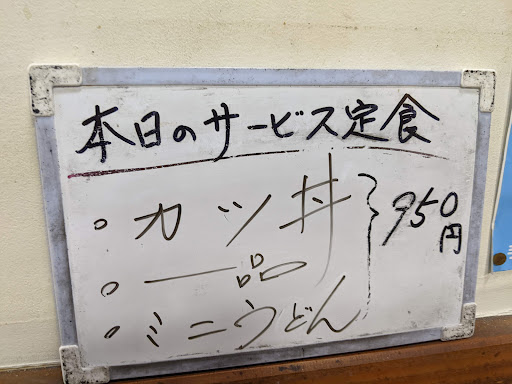 本日のサービス定食
・カツ丼
・一品
・ミニうどん
950円